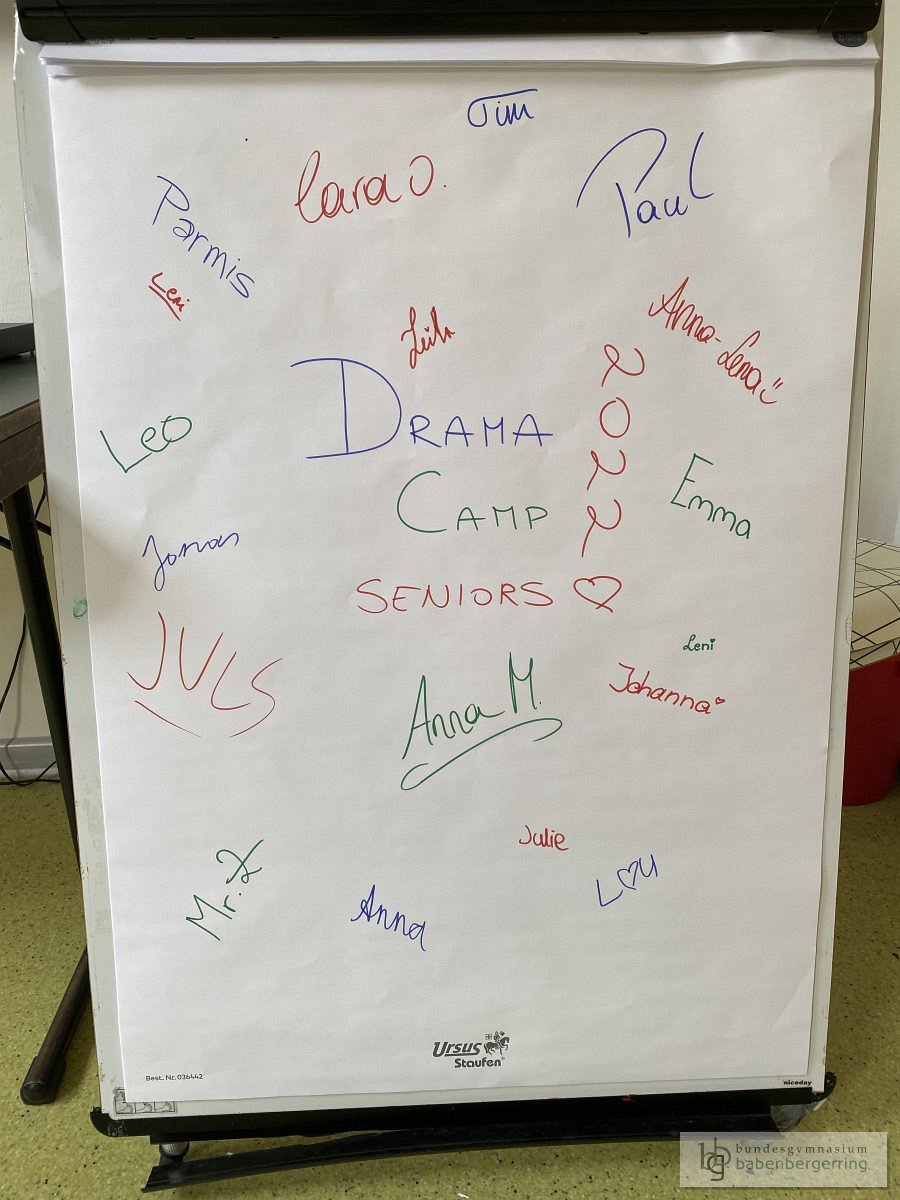 Tim
Lara O.
Paul
Parmis
Leni
Anna-Lena
2022
DRAMA
Leo
CAMP
Emma
Jonas
SENIORS ♡
Leni
JULS
Johanna
Anna M.
Julie
Mr. X
L♡U
Anna
Ursus
Staufen®
Best. Nr. 036442
niceday
bg bundesgymnasium
babenbergerring